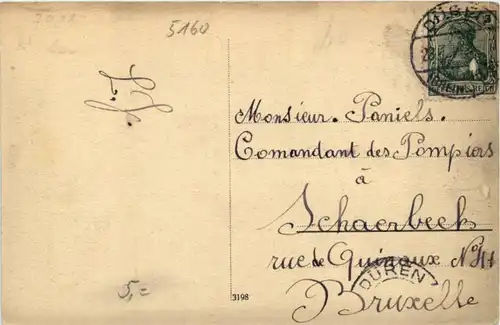 5160
Monsieur. Paniels.
Comandant des Pompiers
à
Schaerbeek
rue de Quinaux
DÜREN
Bruxelle
5,=
3198